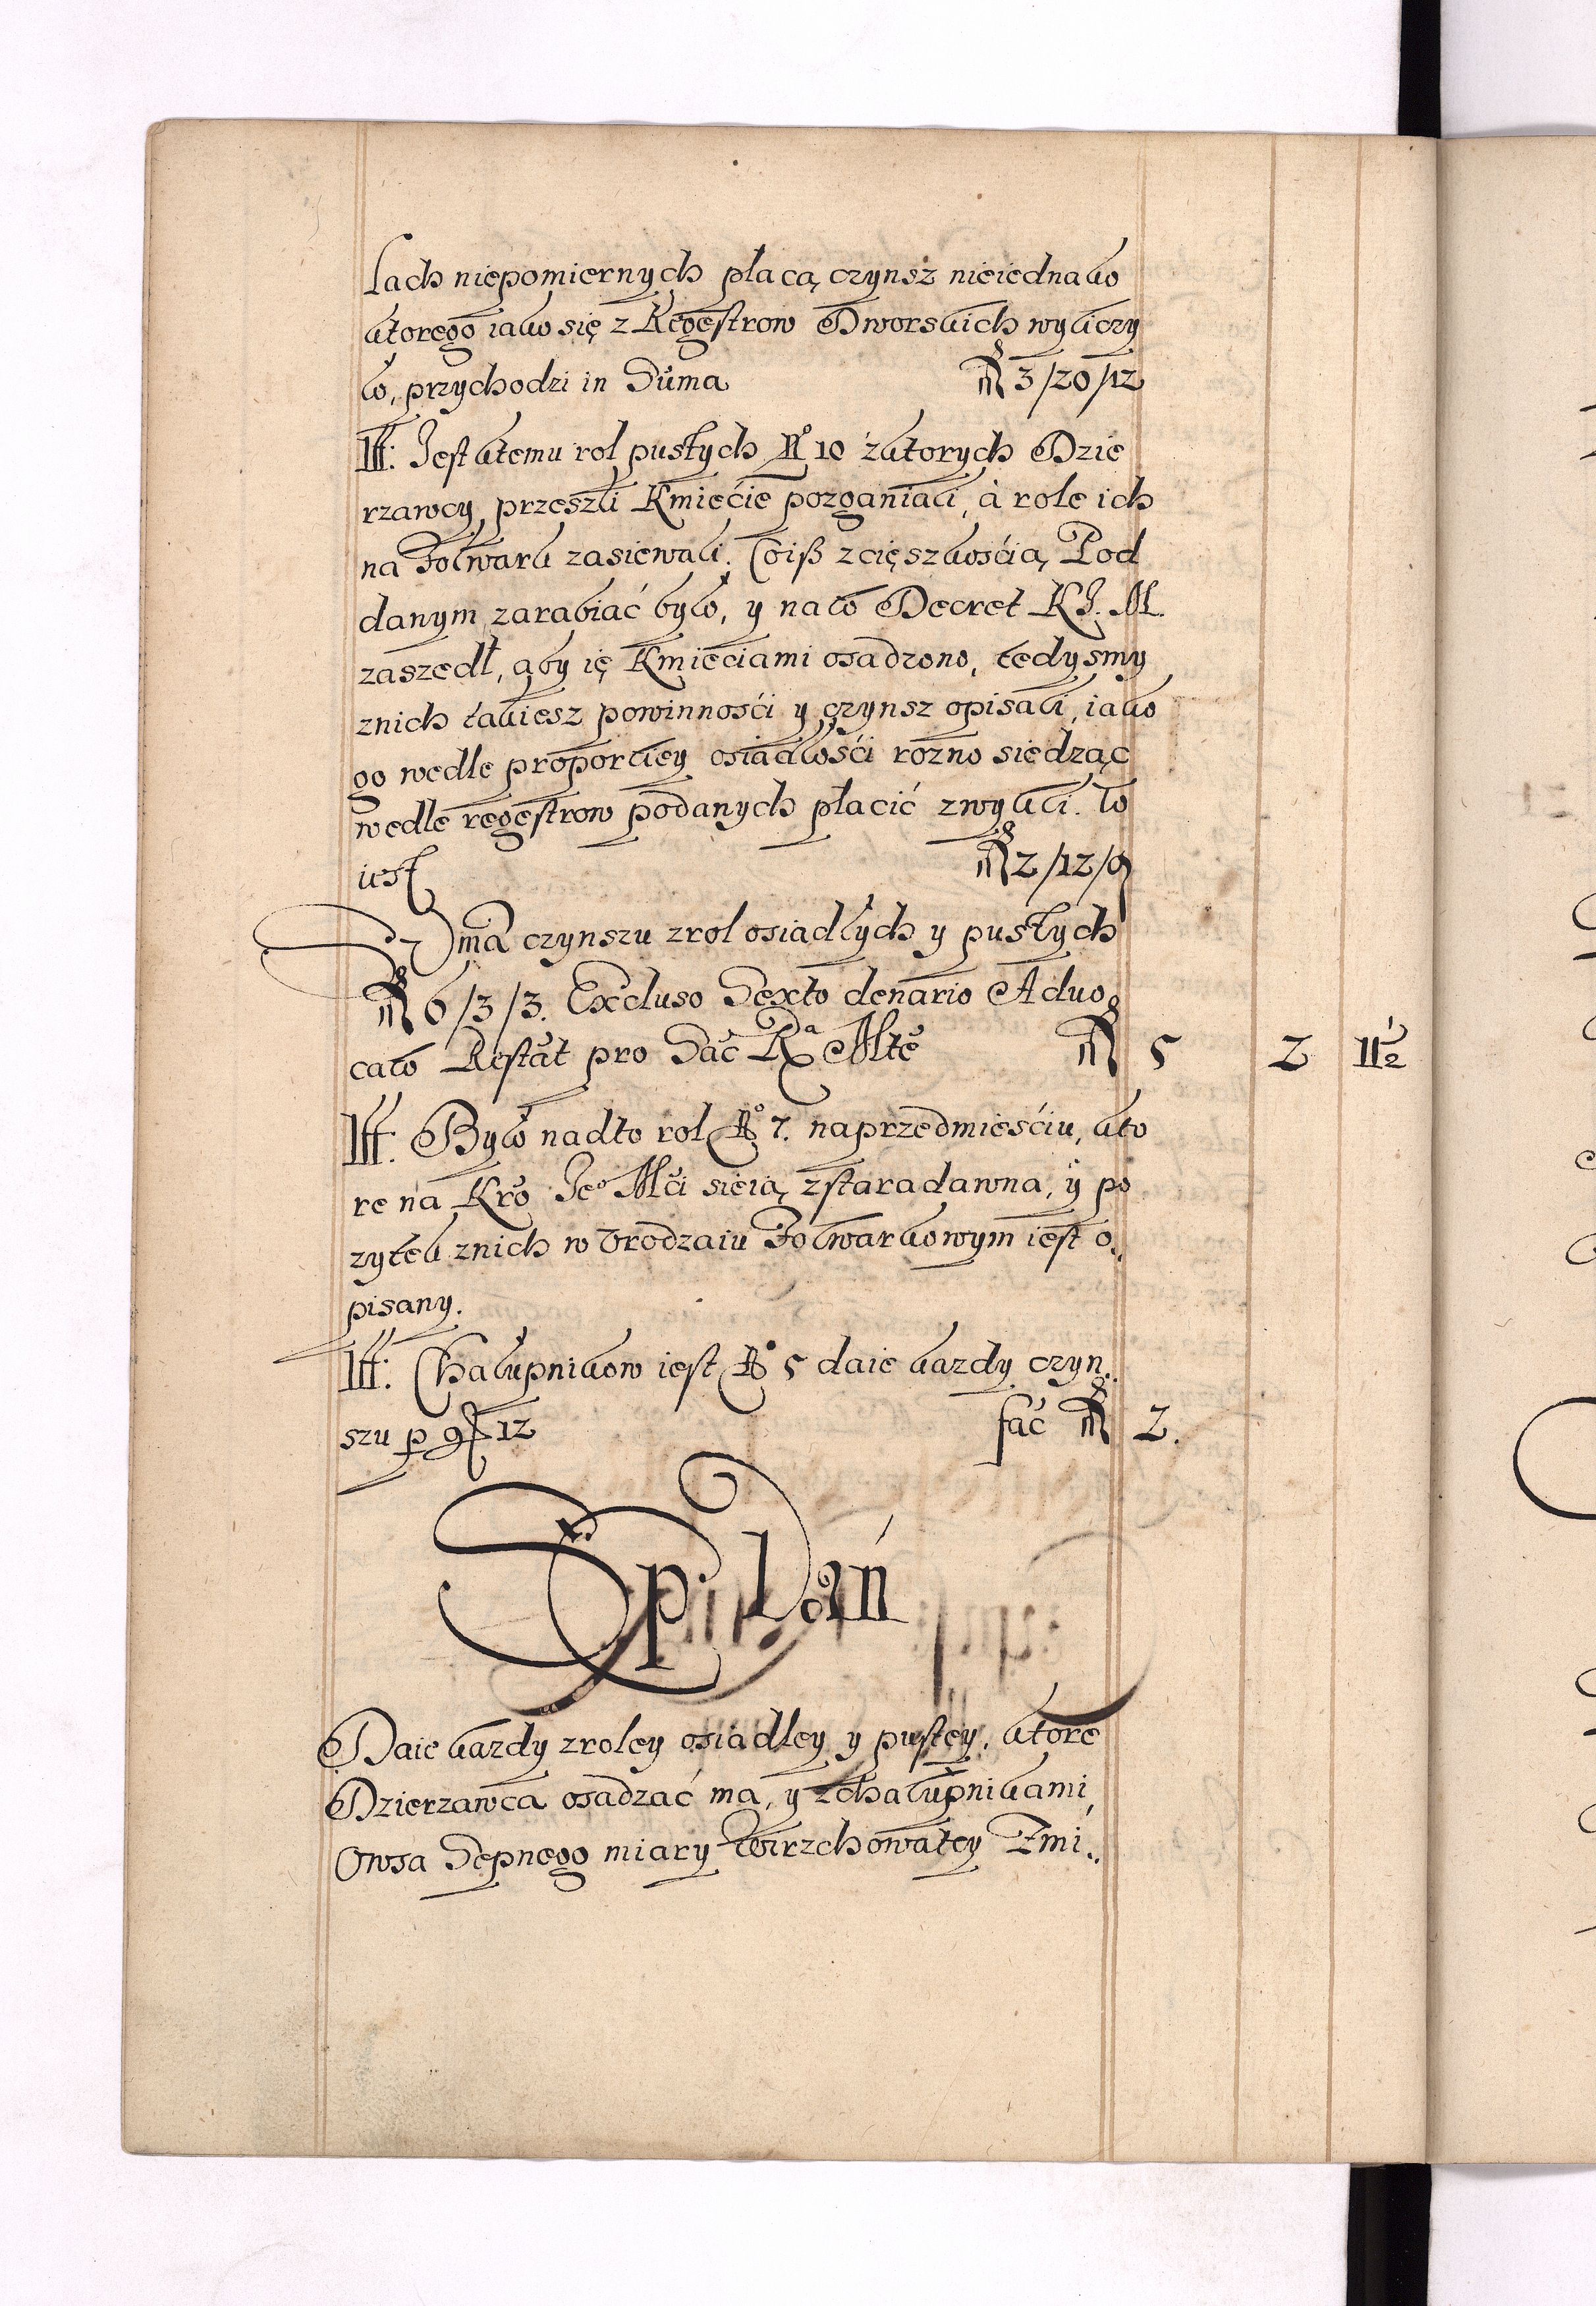 lach niepomiernych płacą czynsz nieiednako
ktorego iako się z Regestrow Dworskich wyliczy
ło, przychodzi in Suma fl 3/20/12
Itt: Jest ktemu rol pustych No 10 z ktorych Dzie
rzawcy przeszli Kmiecie pozganiali, à role ich
na Folwark zasiewali. Coiß z cięszkością Pod
danym zarabiać było, y na to Decret K J. M.
zaszedł, aby ię Kmieciami osadzono, tedysmy
znich takiesz powinności y czynsz opisali, iako
go wedle proportiey osiadłości rozno siedząc
wedle regestrow podanych płacić zwykli. to
iest fl 2/12/9
Summa czynszu zrol osiadłych y pustych
fl 6/3/3. Excluso Sexto denario Aduo
cato Restat pro Sac Ra Mte fl 5 2 11½
Itt. Było nadto rol No 7. na przedmieściu, kto
re na Kro Jeo Mci sieią zstaradawna, y po
zytek znich w Vrodzaiu Folwarkowym iest o
pisany.
Itt: Chałupnikow iest No 5 daie kazdy czyn
szu p gr 12 fac fl 2.
Sp: Dań
Daie kazdy zroley osiadley y pustey, ktore
Dzierzawca osadzać ma, y z chałupnikami
Owsa Sepnego miary Wirzchowatey Zmi